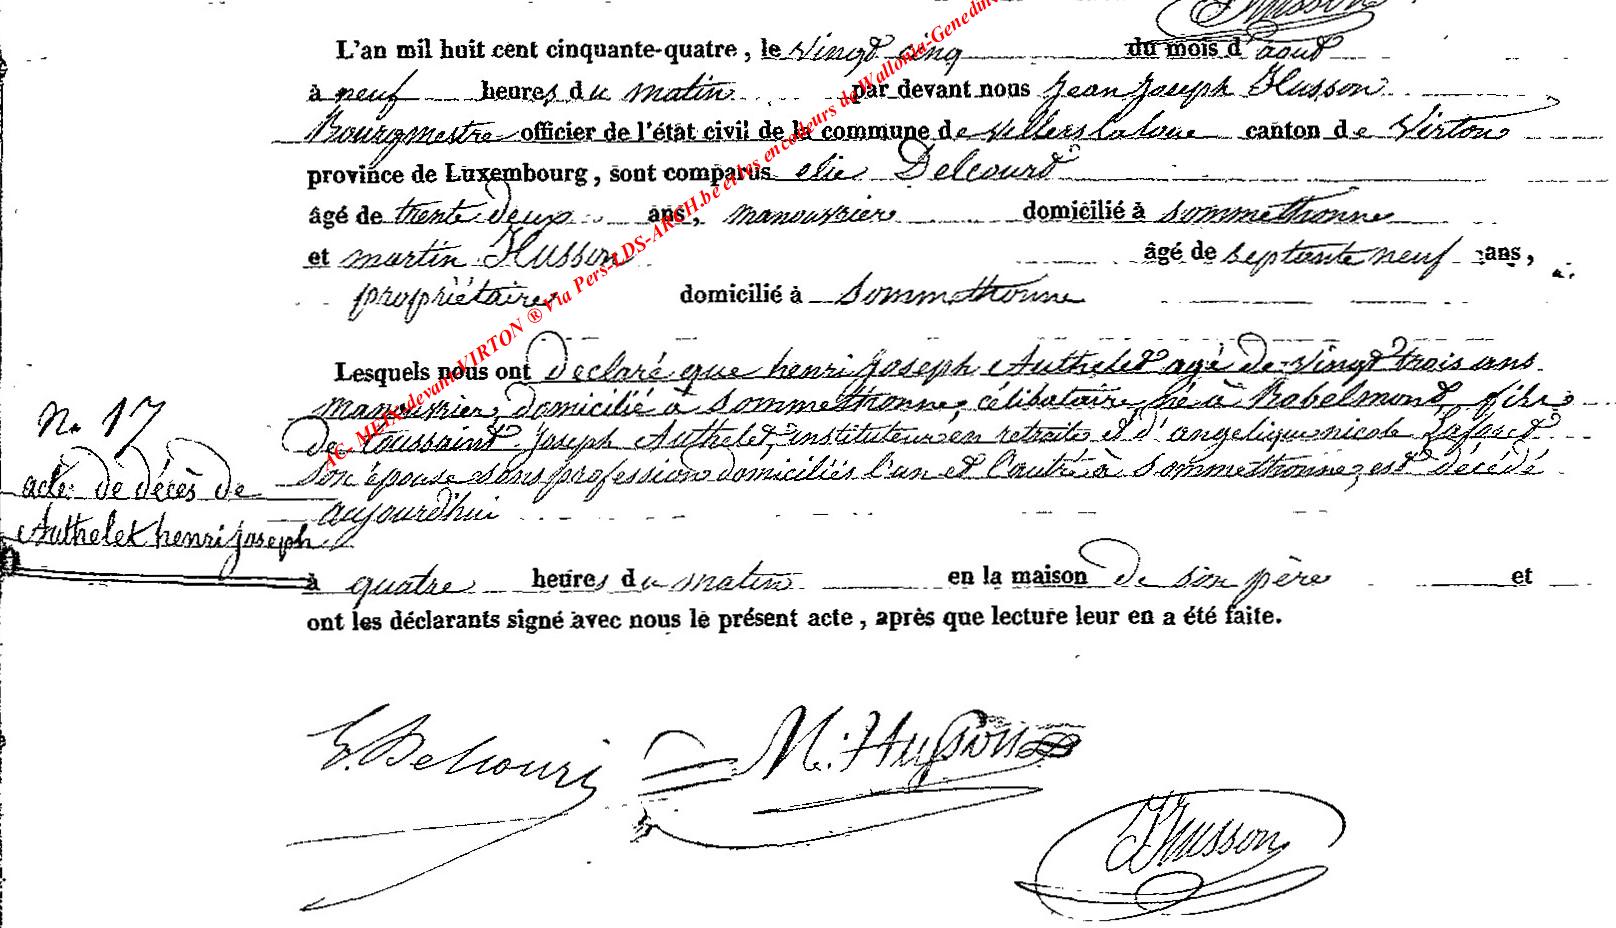 Husson
L'an mil huit cent cinquante-quatre, le vingt cinq du mois d'aout
à neuf heures du matin par devant nous jean joseph Husson
Bourgmestre officier de l'état civil de la commune de villers la loue canton de Virton
province de Luxembourg, sont comparus elie Delcourt
âgé de trente deux ans, manouvrier domicilié à sommethonne
et martin Husson âgé de septante neuf ans,
propriétaire domicilié à Sommethonne
Lesquels nous ont declaré que henri joseph Authelet agé de vingt trois ans
manouvrier, domicilié à Sommethonne, célibataire né à Robelmont, fils
de toussaint joseph Authelet, instituteur en retraite et d'angelique nicole Laforet
son épouse sans profession domiciliés l'un et l'autre à Sommethonne, est décédé
aujourd'hui
à quatre heures du matin en la maison de son père et
ont les déclarants signé avec nous le présent acte, après que lecture leur en a été faite.
No 17
acte de décès de
Authelet henri joseph
E. Delcourt
M. Husson
JJ Husson
AC- MEIX devant VIRTON ® Via Pers-LDS-ARCH.be et les encodeurs de Wallonia-Genedin